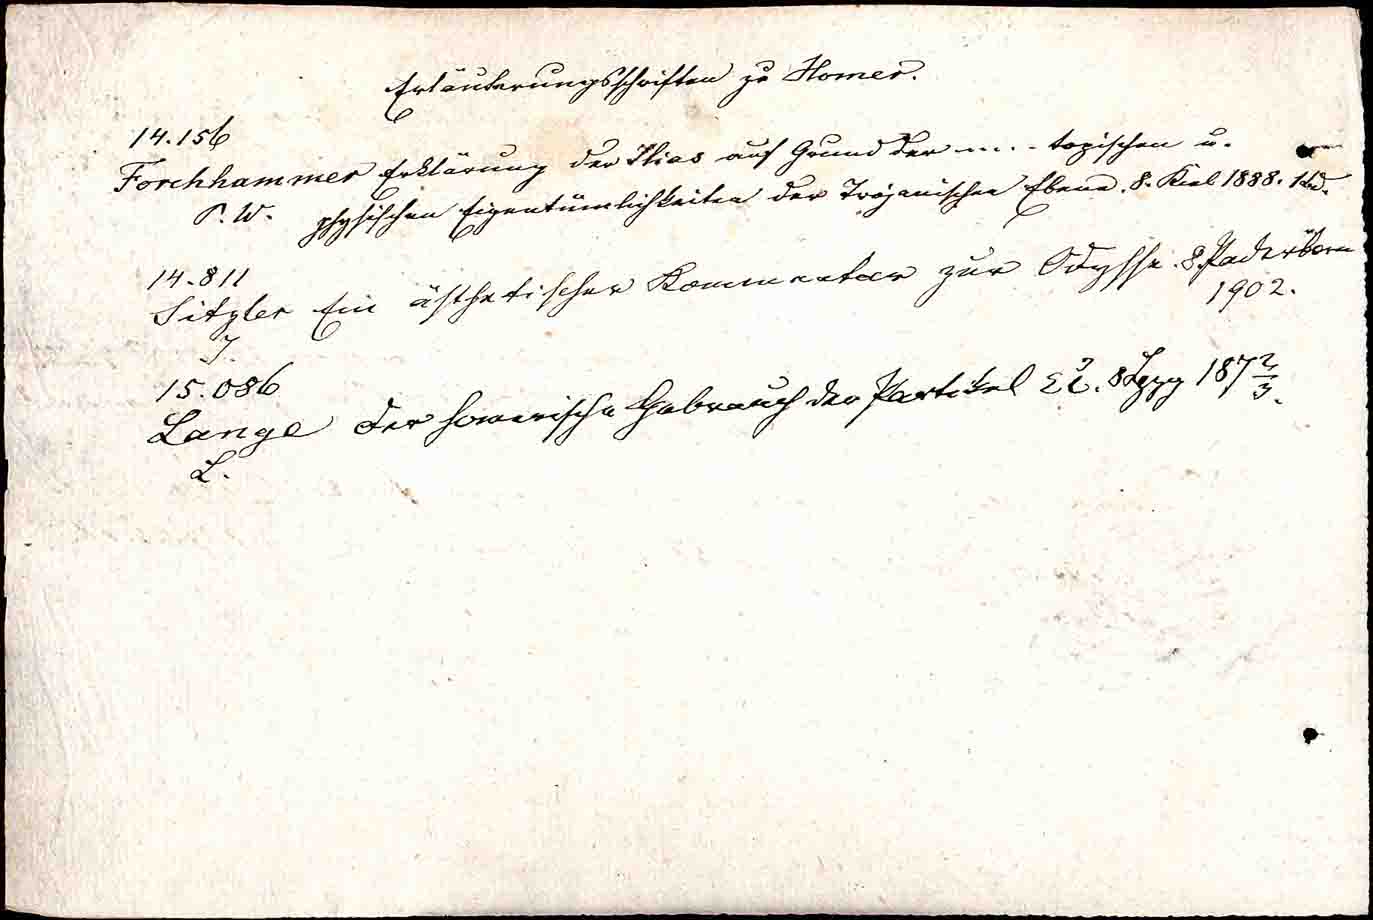 Erläuterungsschriften zu Homer.
14.156
Forchhammer Erklärung der Ilias auf Grund der ... - topischen u.
P. W. physischen Eigentümlichkeiten der Trojanischen Ebene. 8. Kiel 1888.
14.811
Sitzler Ein ästhetischer Kommentar zur Odysse. 8. Paderborn
J. 1902.
15.086
Lange Der homerische Gebrauch der Partikel εἰ. 8 Lpzg 187 2/3.
L.